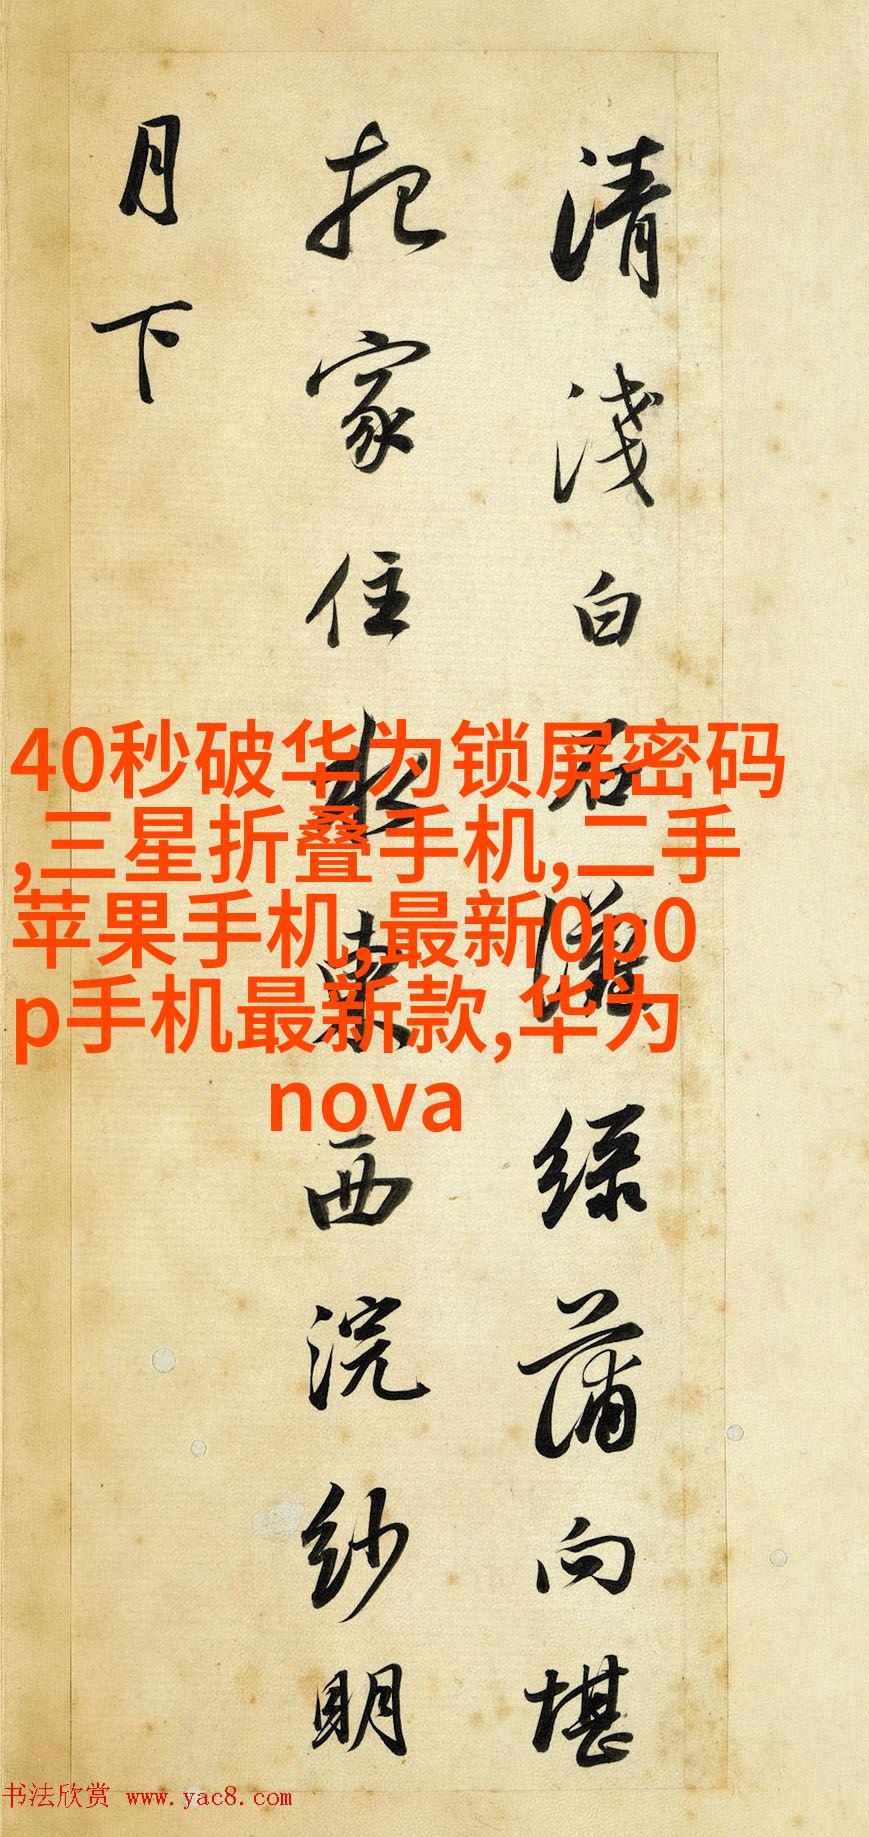 清淺白石灘綠蒲向堪
把家住水東西浣紗明
月下
40秒破华为锁屏密码
,三星折叠手机,二手
苹果手机,最新0p0
p手机最新款,华为
nova
书法欣赏 www.yac8.com